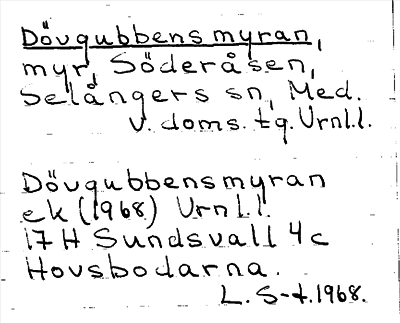 Dövgubbensmyran,
myr, Söderåsen,
Selångers sn, Med.
V. doms. tg. Urnl.l.
Dövgubbensmyran
ek (1968) Urnl.l.
17 H Sundsvall 4c
Hovsbodarna.
L. S-t. 1968.